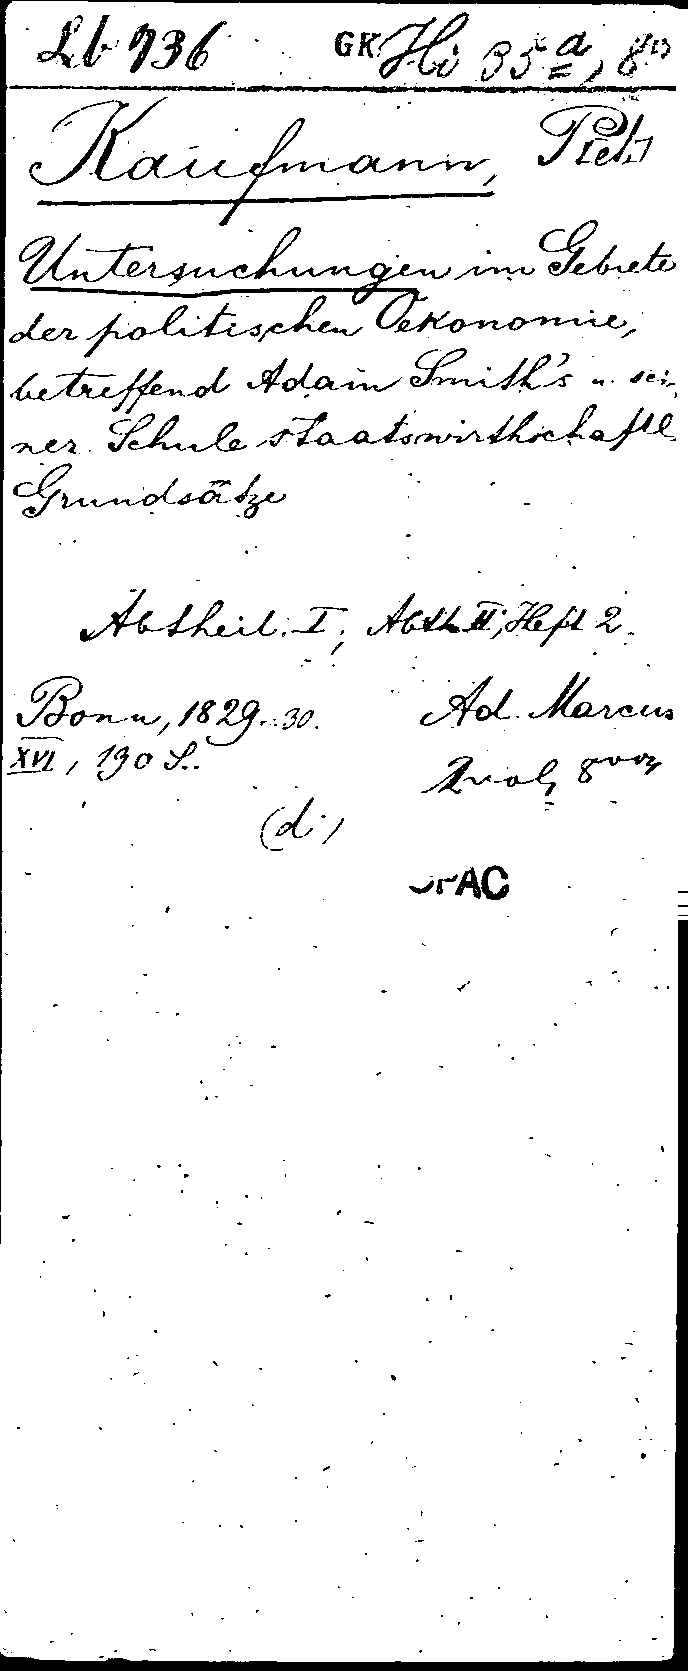 Lb 736 GK Hi 35 a, 8°
Kaufmann, Pet.
Untersuchungen im Gebiete
der politischen Oekonomie,
betreffend Adam Smith's u. sei-
ner Schule staatswirthschaftl.
Grundsätze
Abtheil. I, Abth. II, Heft 2.
Bonn, 1829-30. Ad. Marcus
XVI, 130 S.
(d.)
OPAC